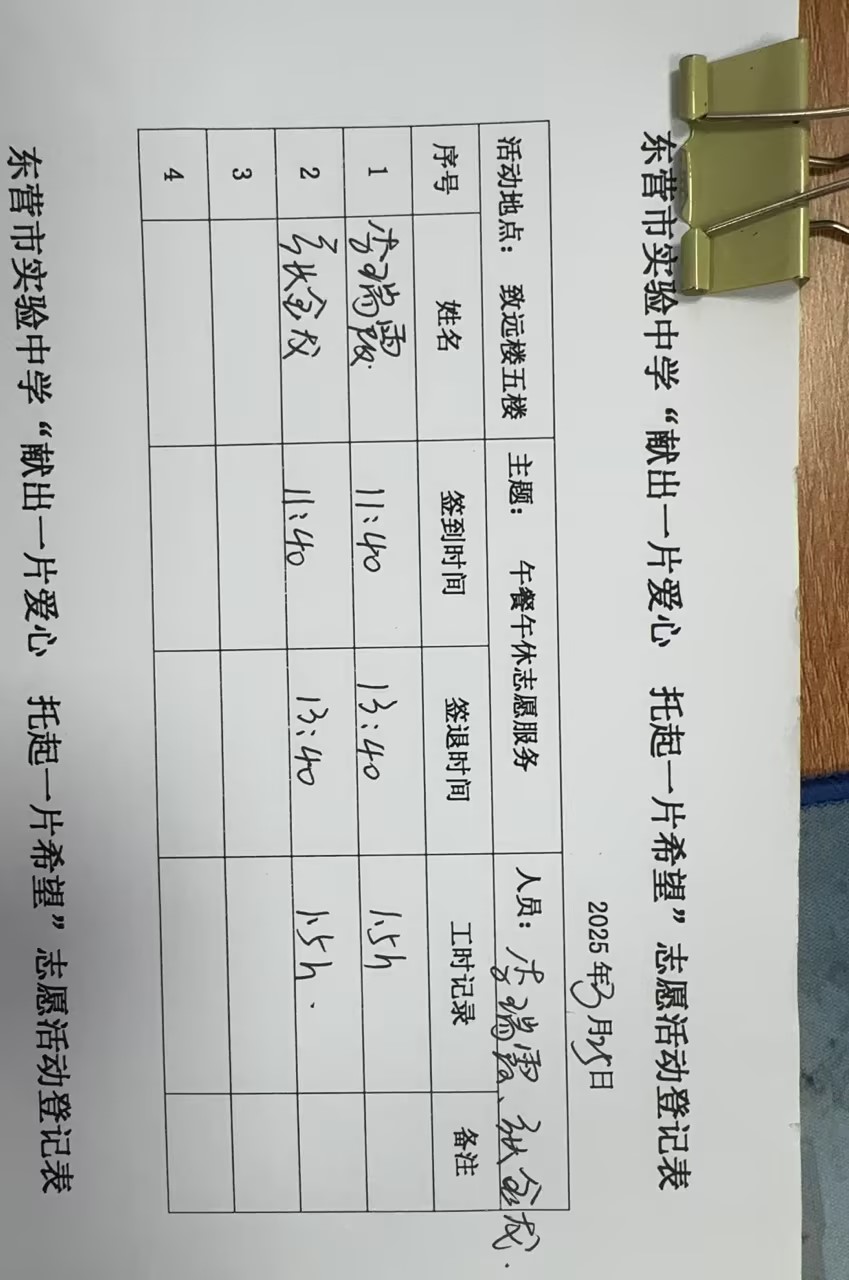 东营市实验中学“献出一片爱心 托起一片希望”志愿活动登记表
2025年3月25日
活动地点： 致远楼五楼 主题： 午餐午休志愿服务 人员：李瑞霞、张金成.
序号 姓名 签到时间 签退时间 工时记录 备注
1 李瑞霞. 11:40 13:40 1.5h
2 张金成 11:40 13:40 1.5h.
3
4
东营市实验中学“献出一片爱心 托起一片希望”志愿活动登记表